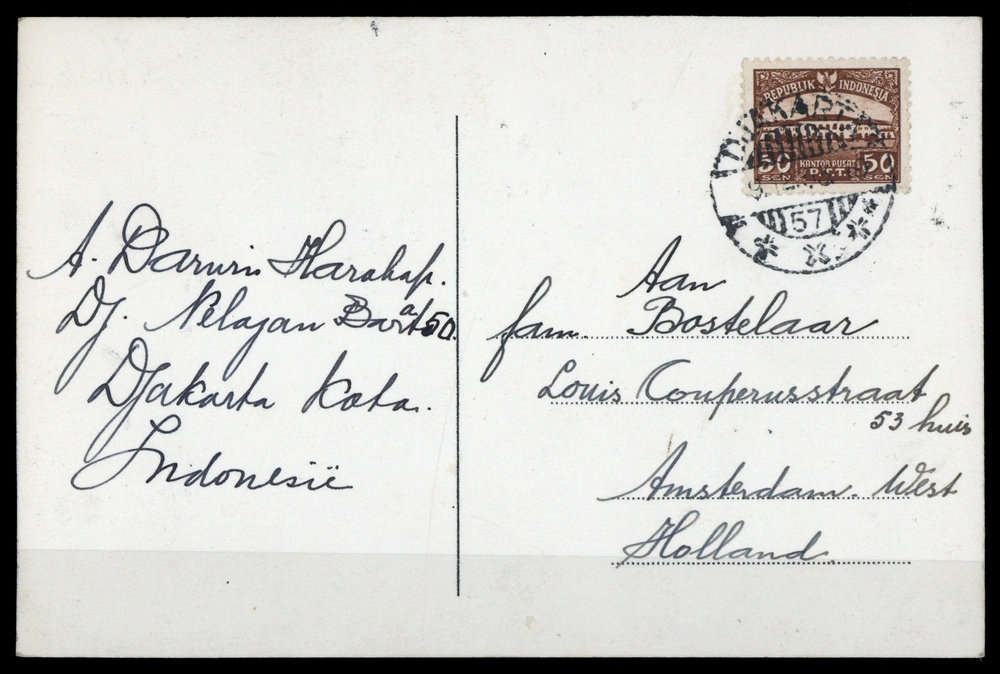 A. Darwin Harahap.
Dj. Nelajan Barat 50.
Djakarta Kota.
Indonesië
REPUBLIK INDONESIA
50 SEN
KANTOR PUSAT
P.T.T.
50 SEN
DJAKARTA
57
Aan
fam. Bostelaar
Louis Couperusstraat
53 huis
Amsterdam. West
Holland.